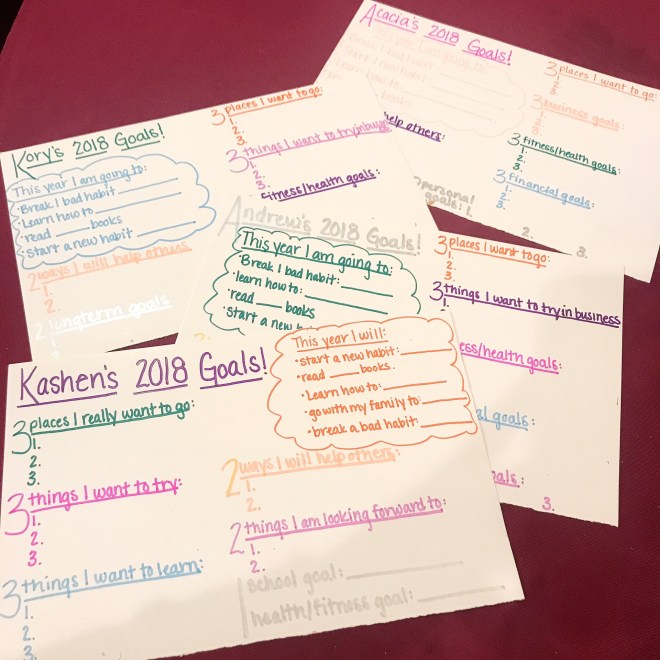 Acacia's 2018 Goals!
3 places I want to go:
1.
2.
3.
3 business goals:
1.
2.
3.
3 fitness/health goals:
1.
2.
3.
3 financial goals:
1.
2.
3.
help others:
personal
goals: 1.
2.
3.
Kory's 2018 Goals!
This year I am going to:
• Break 1 bad habit
• Learn how to
• read books
• start a new habit
2 ways I will help others
1.
2.
2 longterm goals
3 places I want to go:
1.
2.
3.
3 things I want to try in
1.
2.
3.
fitness/health goals:
Andrew's 2018 Goals!
This year I am going to:
• Break 1 bad habit:
• learn how to:
• read books
• start a new
3 places I want to go:
1.
2.
3.
3 things I want to try in business
1.
2.
3.
ess/health goals:
al goals:
als:
3.
Kashen's 2018 Goals!
This year I will:
• start a new habit:
• read books.
• Learn how to:
• go with my family to:
• break a bad habit:
3 places I really want to go:
1.
2.
3.
3 things I want to try:
1.
2.
3.
3 things I want to learn:
1.
2.
3.
2 ways I will help others:
1.
2.
2 things I am looking forward to:
1.
2.
school goal:
health/fitness goal: